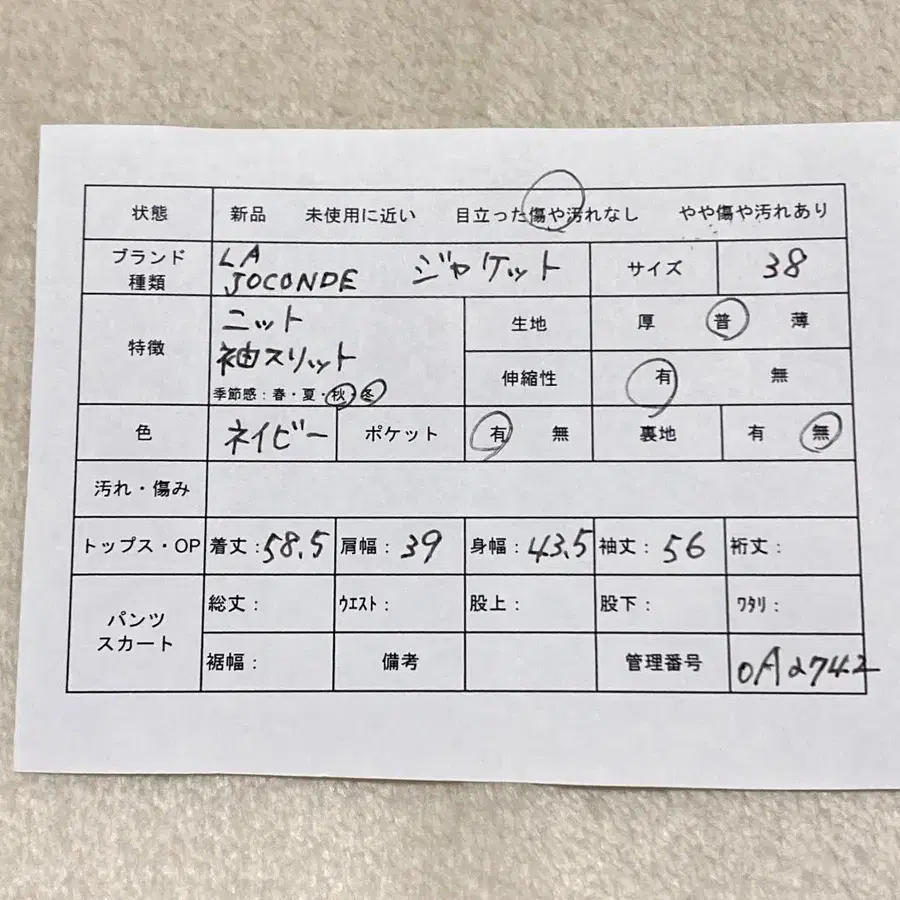 状態 新品 未使用に近い 目立った傷や汚れなし やや傷や汚れあり
ブランド 種類 LA JOCONDE ジャケット サイズ 38
特徴 ニット 生地 厚 普 薄
袖スリット 伸縮性 有 無
季節感：春・夏・秋・冬
色 ネイビー ポケット 有 無 裏地 有 無
汚れ・傷み
トップス・OP 着丈：58.5 肩幅：39 身幅：43.5 袖丈：56 裄丈：
パンツ スカート 総丈： ｳｴｽﾄ： 股上： 股下： ﾜﾀﾘ：
裾幅： 備考 管理番号 0A2742